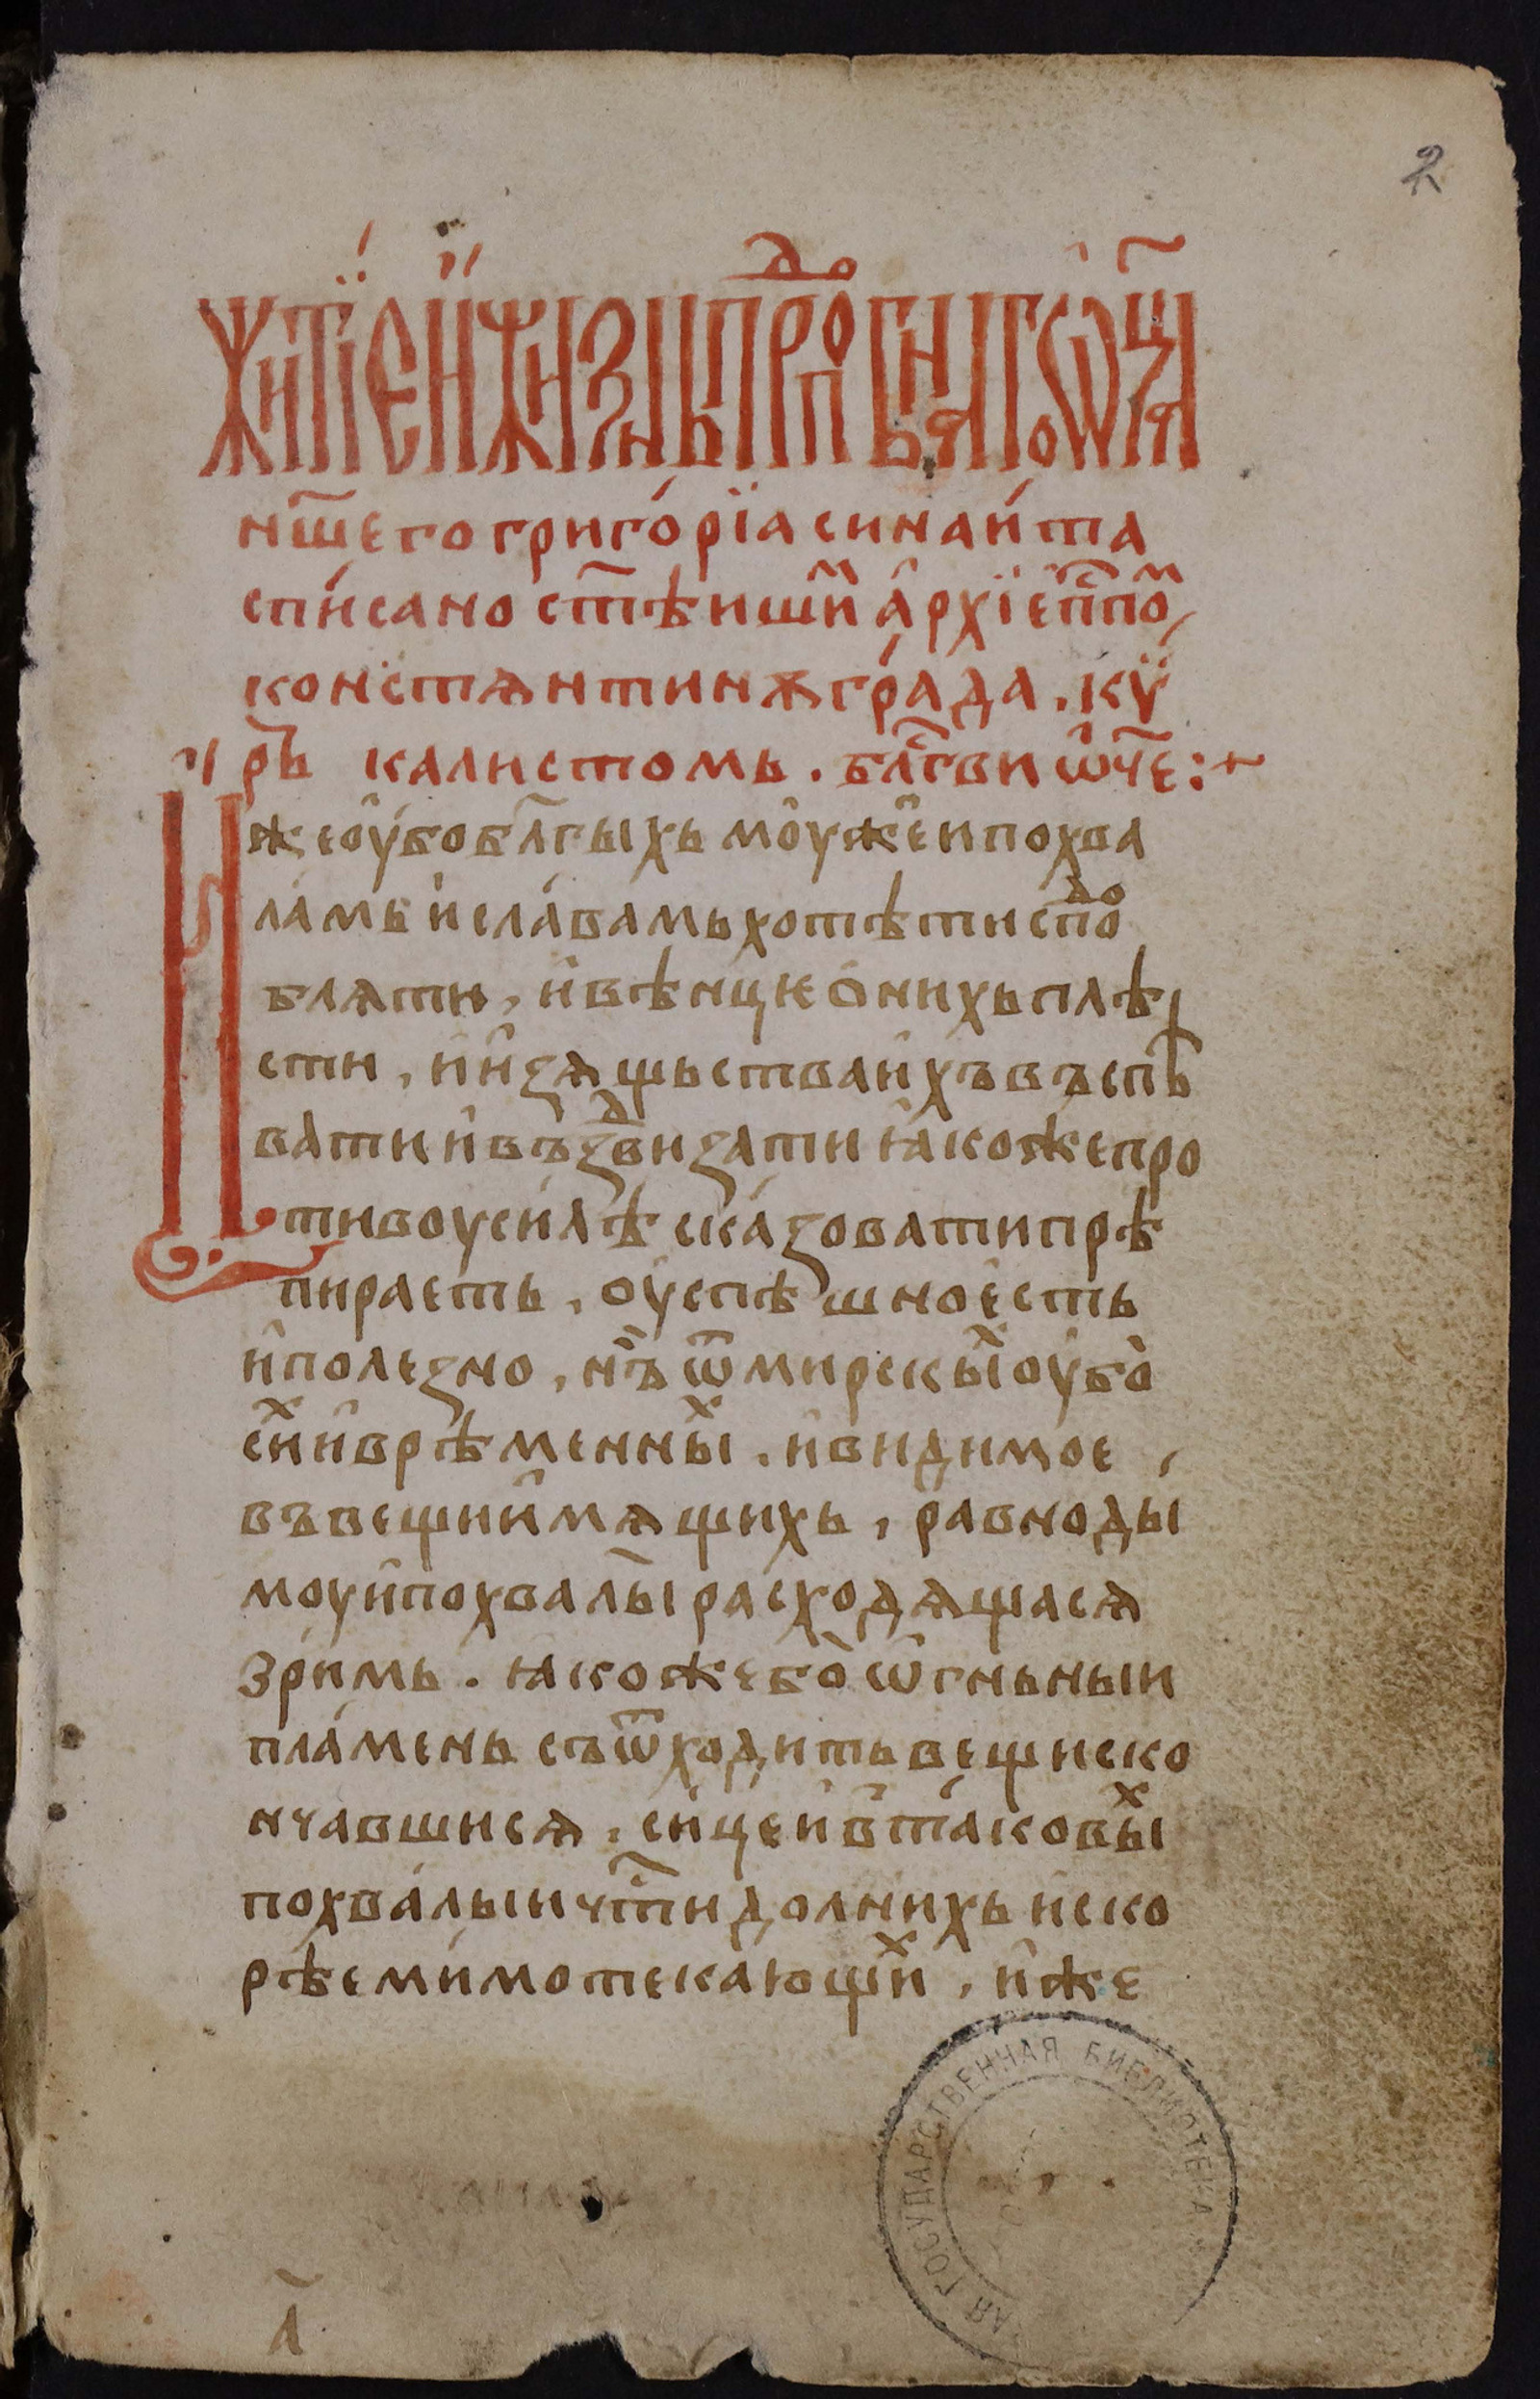 2
Житїе и жизнь прпⷣобнаго ѿца
нш҃его григо́рїа синаи́та
спи́сано ст҃ѣишиⷨ а́рхїеп҃поⷨ
конⸯстѧнтинѫ гра́да. кѷ
рь калистомь. блг҃ви ѡ҆ч҃е:~
Иже оу҆бо бл҃гыхь моужеи похва
ла́мь и҆ сла́вамь хотѣти споⷣо
блѧти, и҆ вѣнце ѻ҆ нихь плѣ
сти, и҆ и҆ꙁѧщьства и҆хъ въспѣ
вати и҆ въꙁⷣвиꙁати ꙗ҆коже про
тивоу силѣ ска́ꙁовати прѣ
пираеть, оу҆спѣшно е҆сть
и҆ полеꙁно, нъ ѿ мирскыⷯ оу҆бо
сиⷯ и҆ врѣменныⷯ. и҆ видимое
въ вещи и҆мѧщихь, равно ды
моу и҆ похвалы расходѧщасѧ
зримь. ꙗ҆коже бо ѡ҆гньныи
пла́мень съѿходить вещи ско
нчавшисѧ, си́це и҆ в҆ таковыⷯ
похва́лы и чⷭ҇ти долнихь и ско
рѣе мимотекаю́щиⷯ, и҆же
а҃
ГОСУДАРСТВЕННАЯ БИБЛИОТЕКА